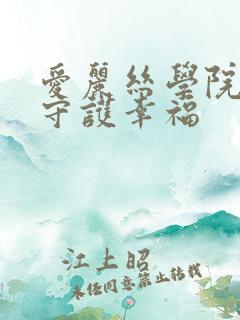 愛麗絲學院
守護幸福
江上昭
未經同意禁止轉載